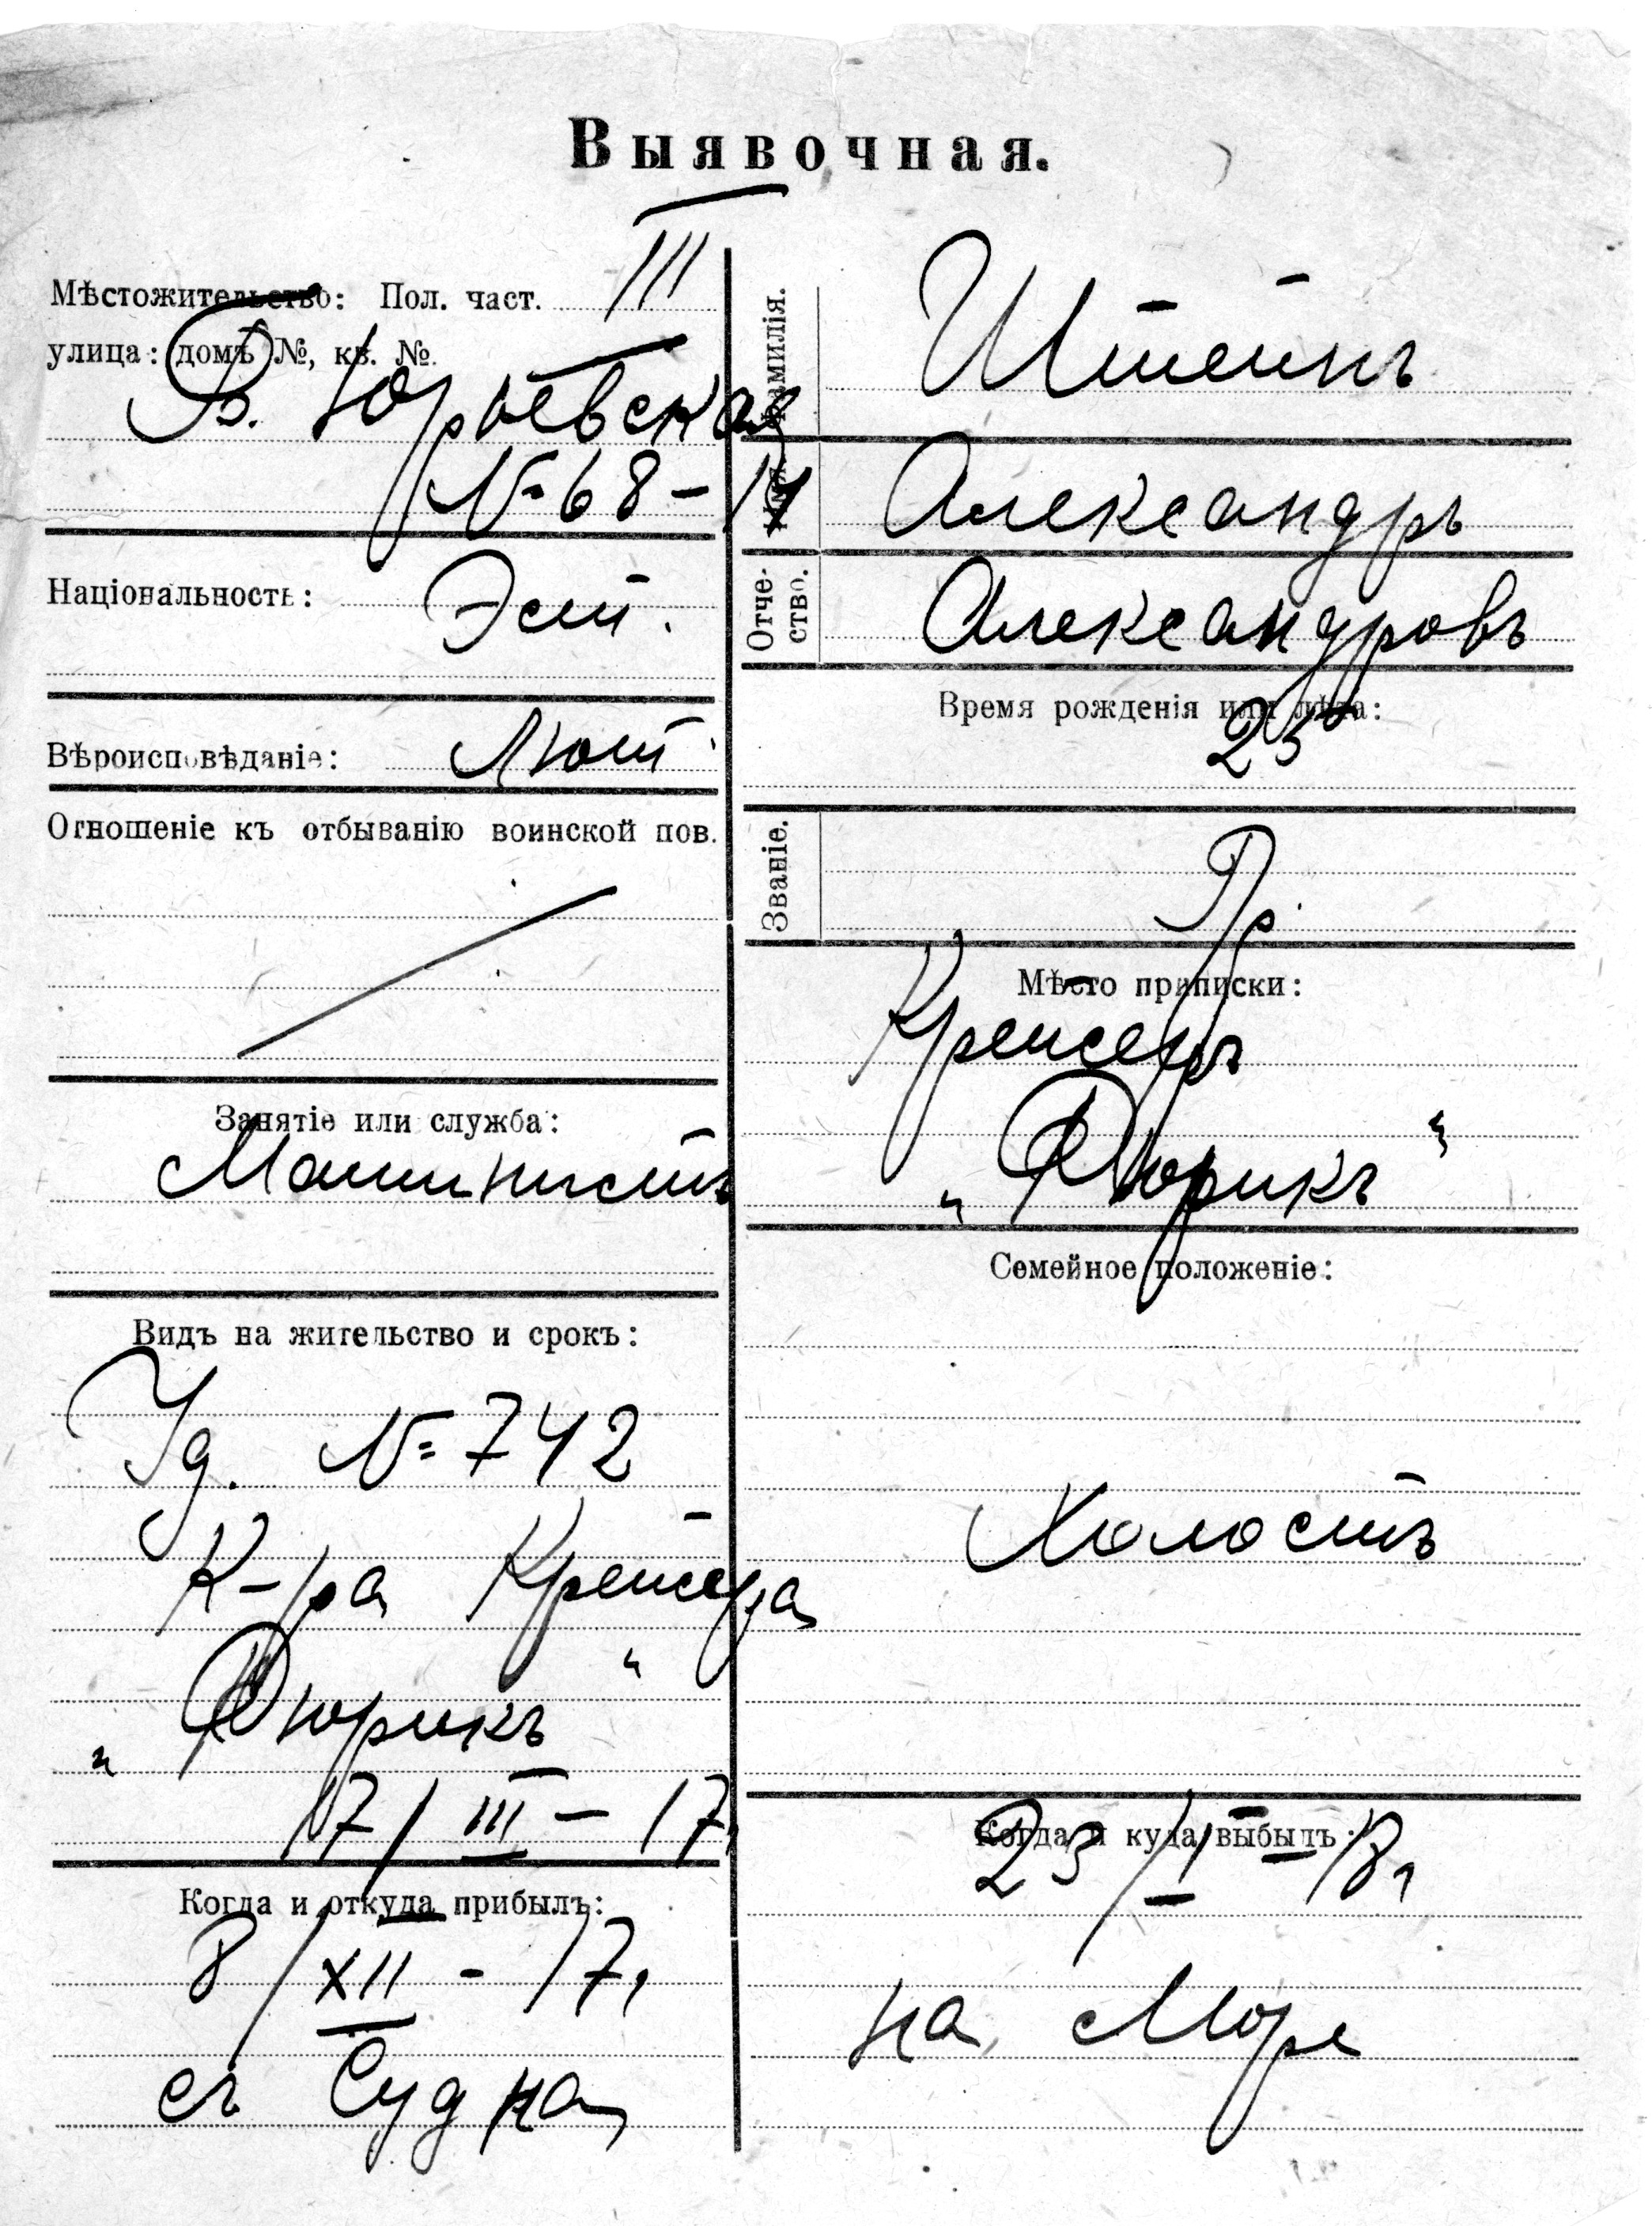 Выявочная.
Мѣстожительство: Пол. част. III
улица: домъ №, кв. №.
Б. Юрьевская
№ 68 - 14
Національность: Эст.
Вѣроисповѣданіе: Лют.
Отношеніе къ отбыванію воинской пов.
Занятіе или служба:
Машинистъ
Видъ на жительство и срокъ:
Уд. № 742
К-ра Крейсера
„Рюрикъ“
17/III - 17,
Когда и откуда прибылъ:
8/XII - 17,
съ Судна
Фамилія. Штейнъ
Имя. Александръ
Отче-
ство. Александровъ
Время рожденія или лѣта:
25
Званіе.
Мѣсто приписки:
Крейсеръ
„Рюрикъ“
Семейное положеніе:
Холостъ
Когда и куда выбылъ:
23/I - 18,
на Море